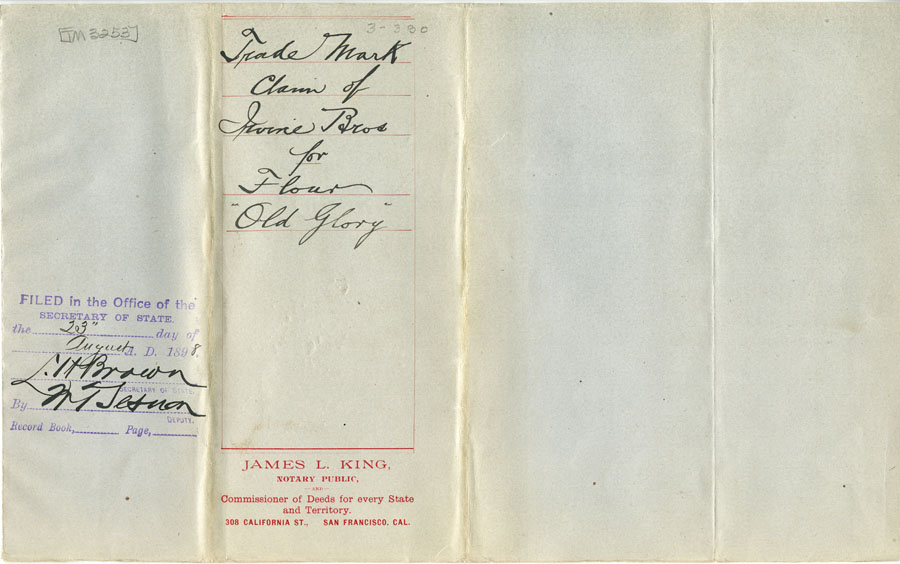 [TM 3253]
3-380
Trade Mark
Claim of
Irvine Bros
for
Flour
"Old Glory"
FILED in the Office of the
SECRETARY OF STATE,
the 23" day of
August A. D. 1898.
L. H. Brown
SECRETARY OF STATE
By
DEPUTY.
Record Book, Page,
JAMES L. KING,
NOTARY PUBLIC,
—AND—
Commissioner of Deeds for every State
and Territory.
308 CALIFORNIA ST., SAN FRANCISCO, CAL.